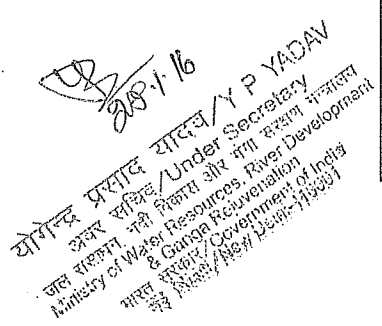 योगेन्द्र प्रसाद यादव/Y P YADAV
अवर सचिव/Under Secretary
जल संसाधन, नदी विकास और गंगा संरक्षण मंत्रालय
Ministry of Water Resources, River Development
& Ganga Rejuvenation
भारत सरकार/Government of India
नई दिल्ली/New Delhi-110001